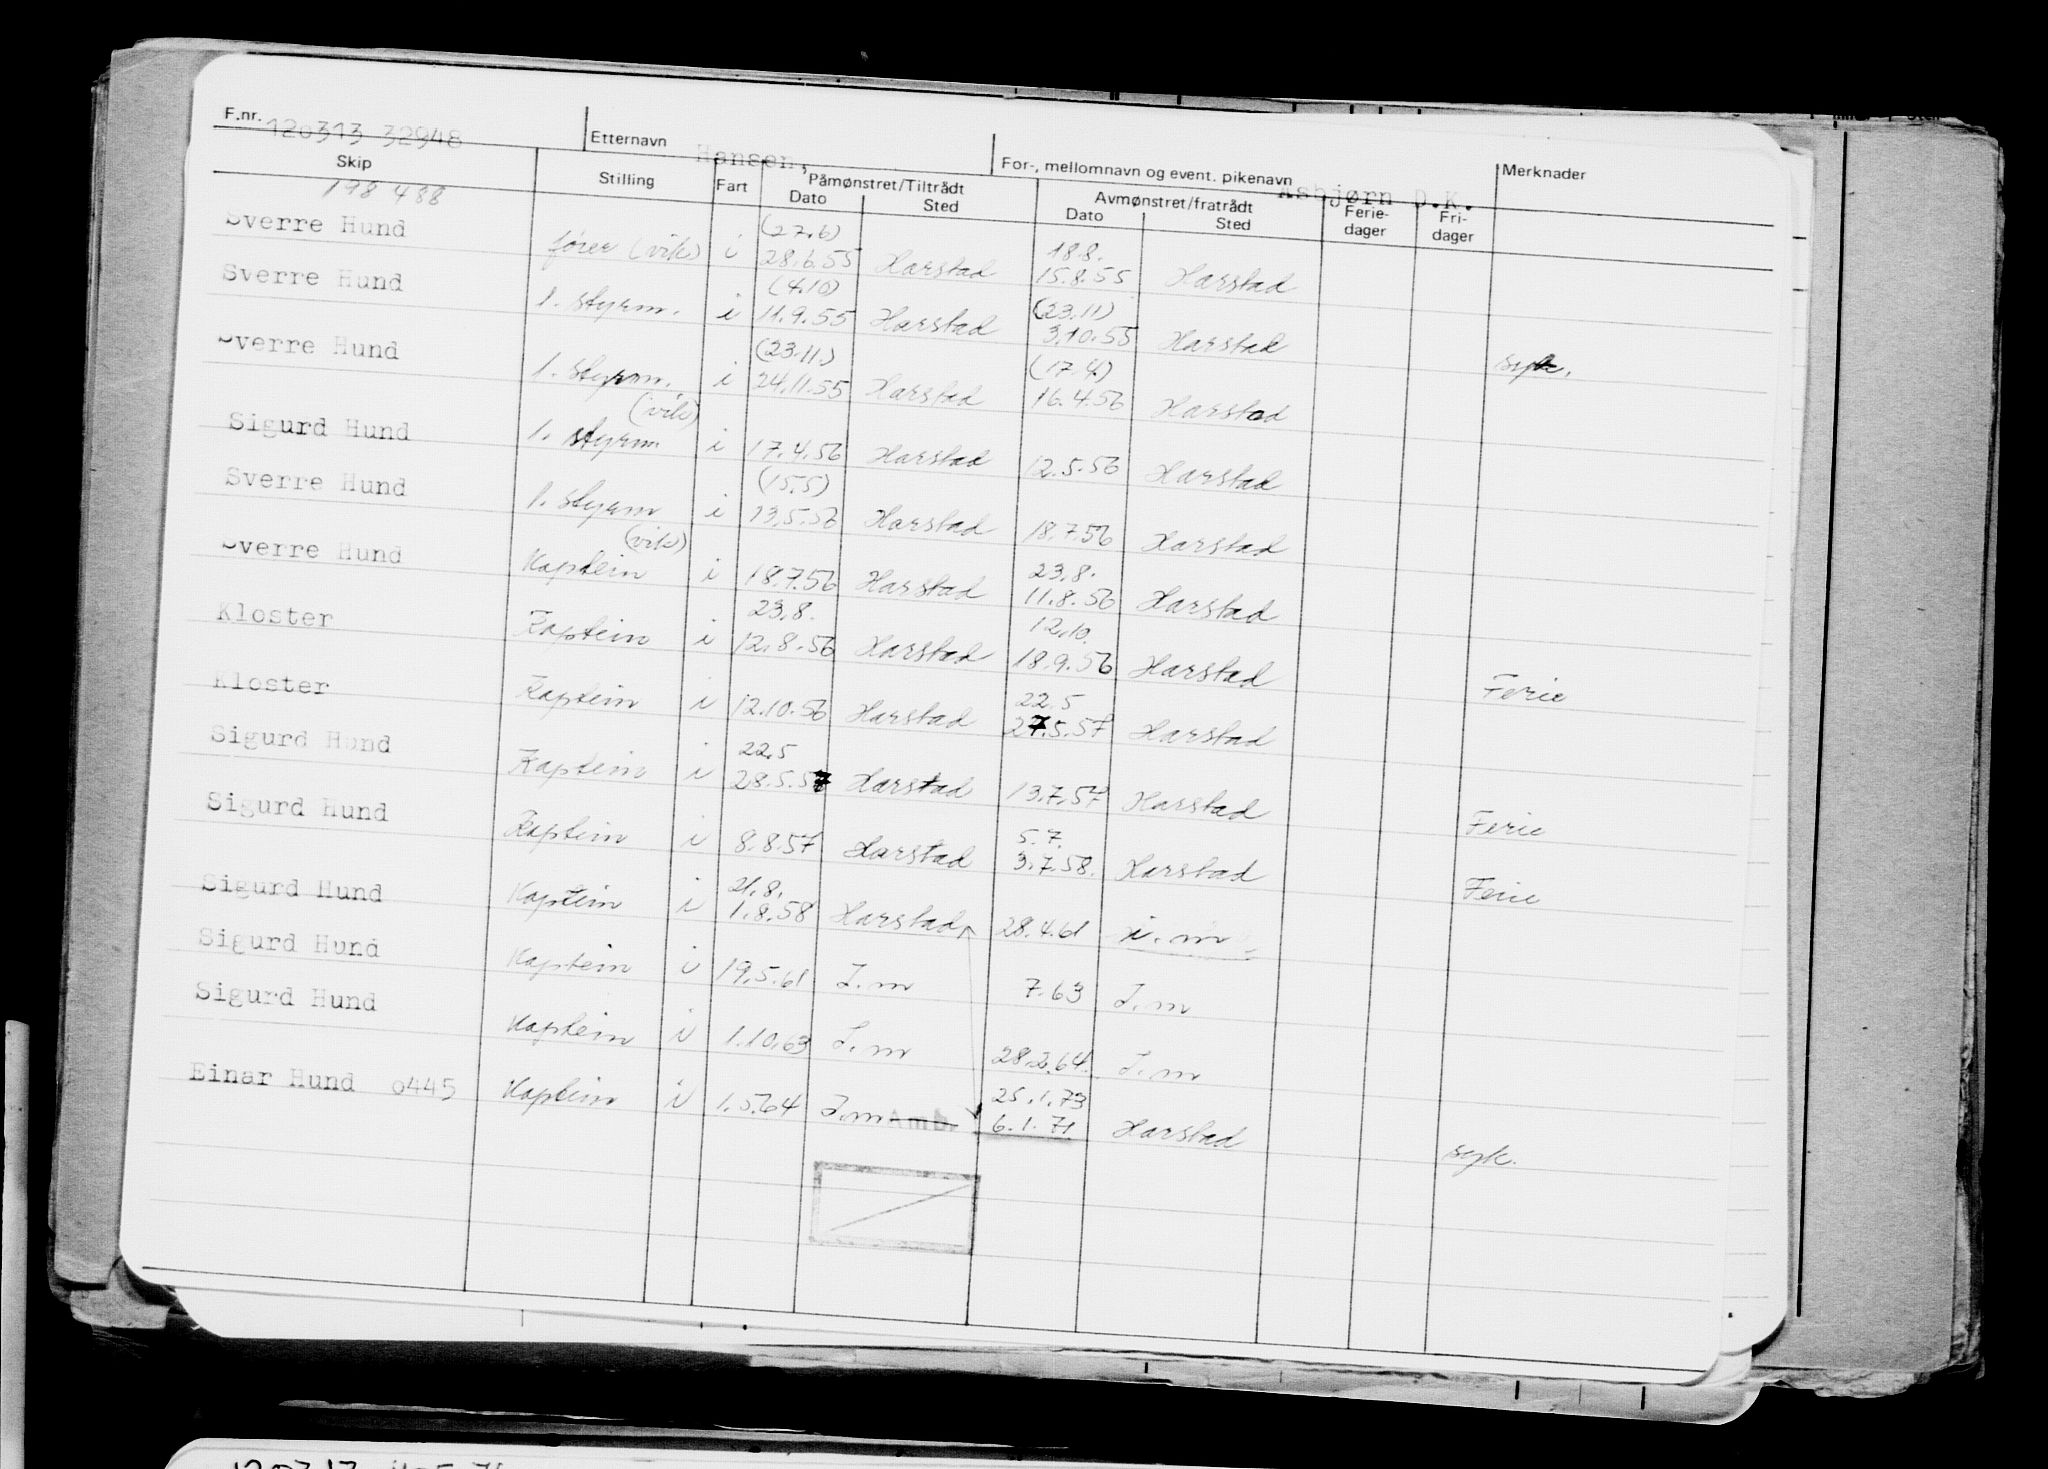 F.nr. 120313 32948 Etternavn Hansen, For-, mellomnavn og event. pikenavn Asbjørn D.K. Merknader
Skip Stilling Fart Påmønstret/Tiltrådt Avmønstret/fratrådt Ferie-dager Fri-dager
Dato Sted Dato Sted
198 488
(27.6) 18.8.
Sverre Hund fører (vik) i 28.6.55 Harstad 15.8.55 Harstad
(4.10) (23.11)
Sverre Hund 1. styrm. i 11.9.55 Harstad 3.10.55 Harstad syk.
(23.11.) (17.4)
Sverre Hund 1. styrm. i 24.11.55 Harstad 16.4.56 Harstad
(vik)
Sigurd Hund 1. styrm. i 17.4.56 Harstad 12.5.56 Harstad
(15.5)
Sverre Hund 1. styrm i 13.5.56 Harstad 18.7.56 Harstad
(vik) 23.8.
Sverre Hund Kaptein i 18.7.56 Harstad 11.8.56 Harstad
23.8. 12.10.
Kloster Kaptein i 12.8.56 Harstad 18.9.56 Harstad Ferie
22.5
Kloster Kaptein i 12.10.56 Harstad 27.5.57 Harstad
22.5
Sigurd Hund Kaptein i 28.5.57 Harstad 13.7.57 Harstad Ferie
5.7.
Sigurd Hund Kaptein i 8.8.57 Harstad 3.7.58. Harstad Ferie
21.8.
Sigurd Hund Kaptein i 1.8.58 Harstad 28.4.61 i.m
Sigurd Hund Kaptein i 19.5.61 I.m 7.63 I.m
Sigurd Hund Kaptein i 1.10.63 I.m 28.2.64. I.m
25.1.73
Einar Hund o445 Kaptein i 1.5.64 I.m Amb. 6.1.71. Harstad syk.